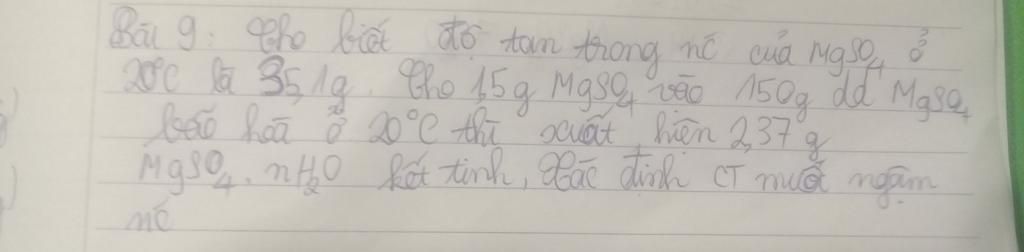 Bài 9: Cho biết độ tan trong nc của MgSO4 ở
20°C là 35,1g. Cho 1,5g MgSO4 vào 150g dd MgSO4
bão hoà ở 20°C thì xuất hiện 2,37g
MgSO4.nH2O kết tinh, Xác định CT muối ngậm
nc